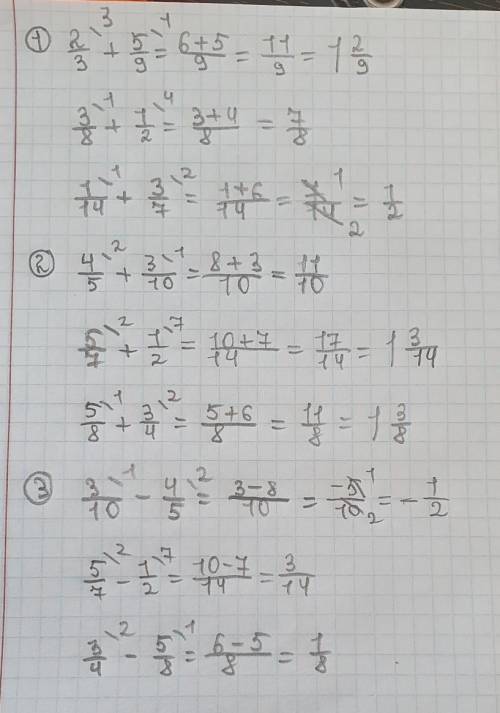 ① 2/3 \3 + 5/9 \1 = (6+5)/9 = 11/9 = 1 2/9
3/8 \1 + 1/2 \4 = (3+4)/8 = 7/8
1/14 \1 + 3/7 \2 = (1+6)/14 = 7/14 1 2 = 1/2
② 4/5 \2 + 3/10 \1 = (8+3)/10 = 11/10
5/7 \2 + 1/2 \7 = (10+7)/14 = 17/14 = 1 3/14
5/8 \1 + 3/4 \2 = (5+6)/8 = 11/8 = 1 3/8
③ 3/10 \1 - 4/5 \2 = (3-8)/10 = -5/10 1 2 = - 1/2
5/7 \2 - 1/2 \7 = (10-7)/14 = 3/14
3/4 \2 - 5/8 \1 = (6-5)/8 = 1/8